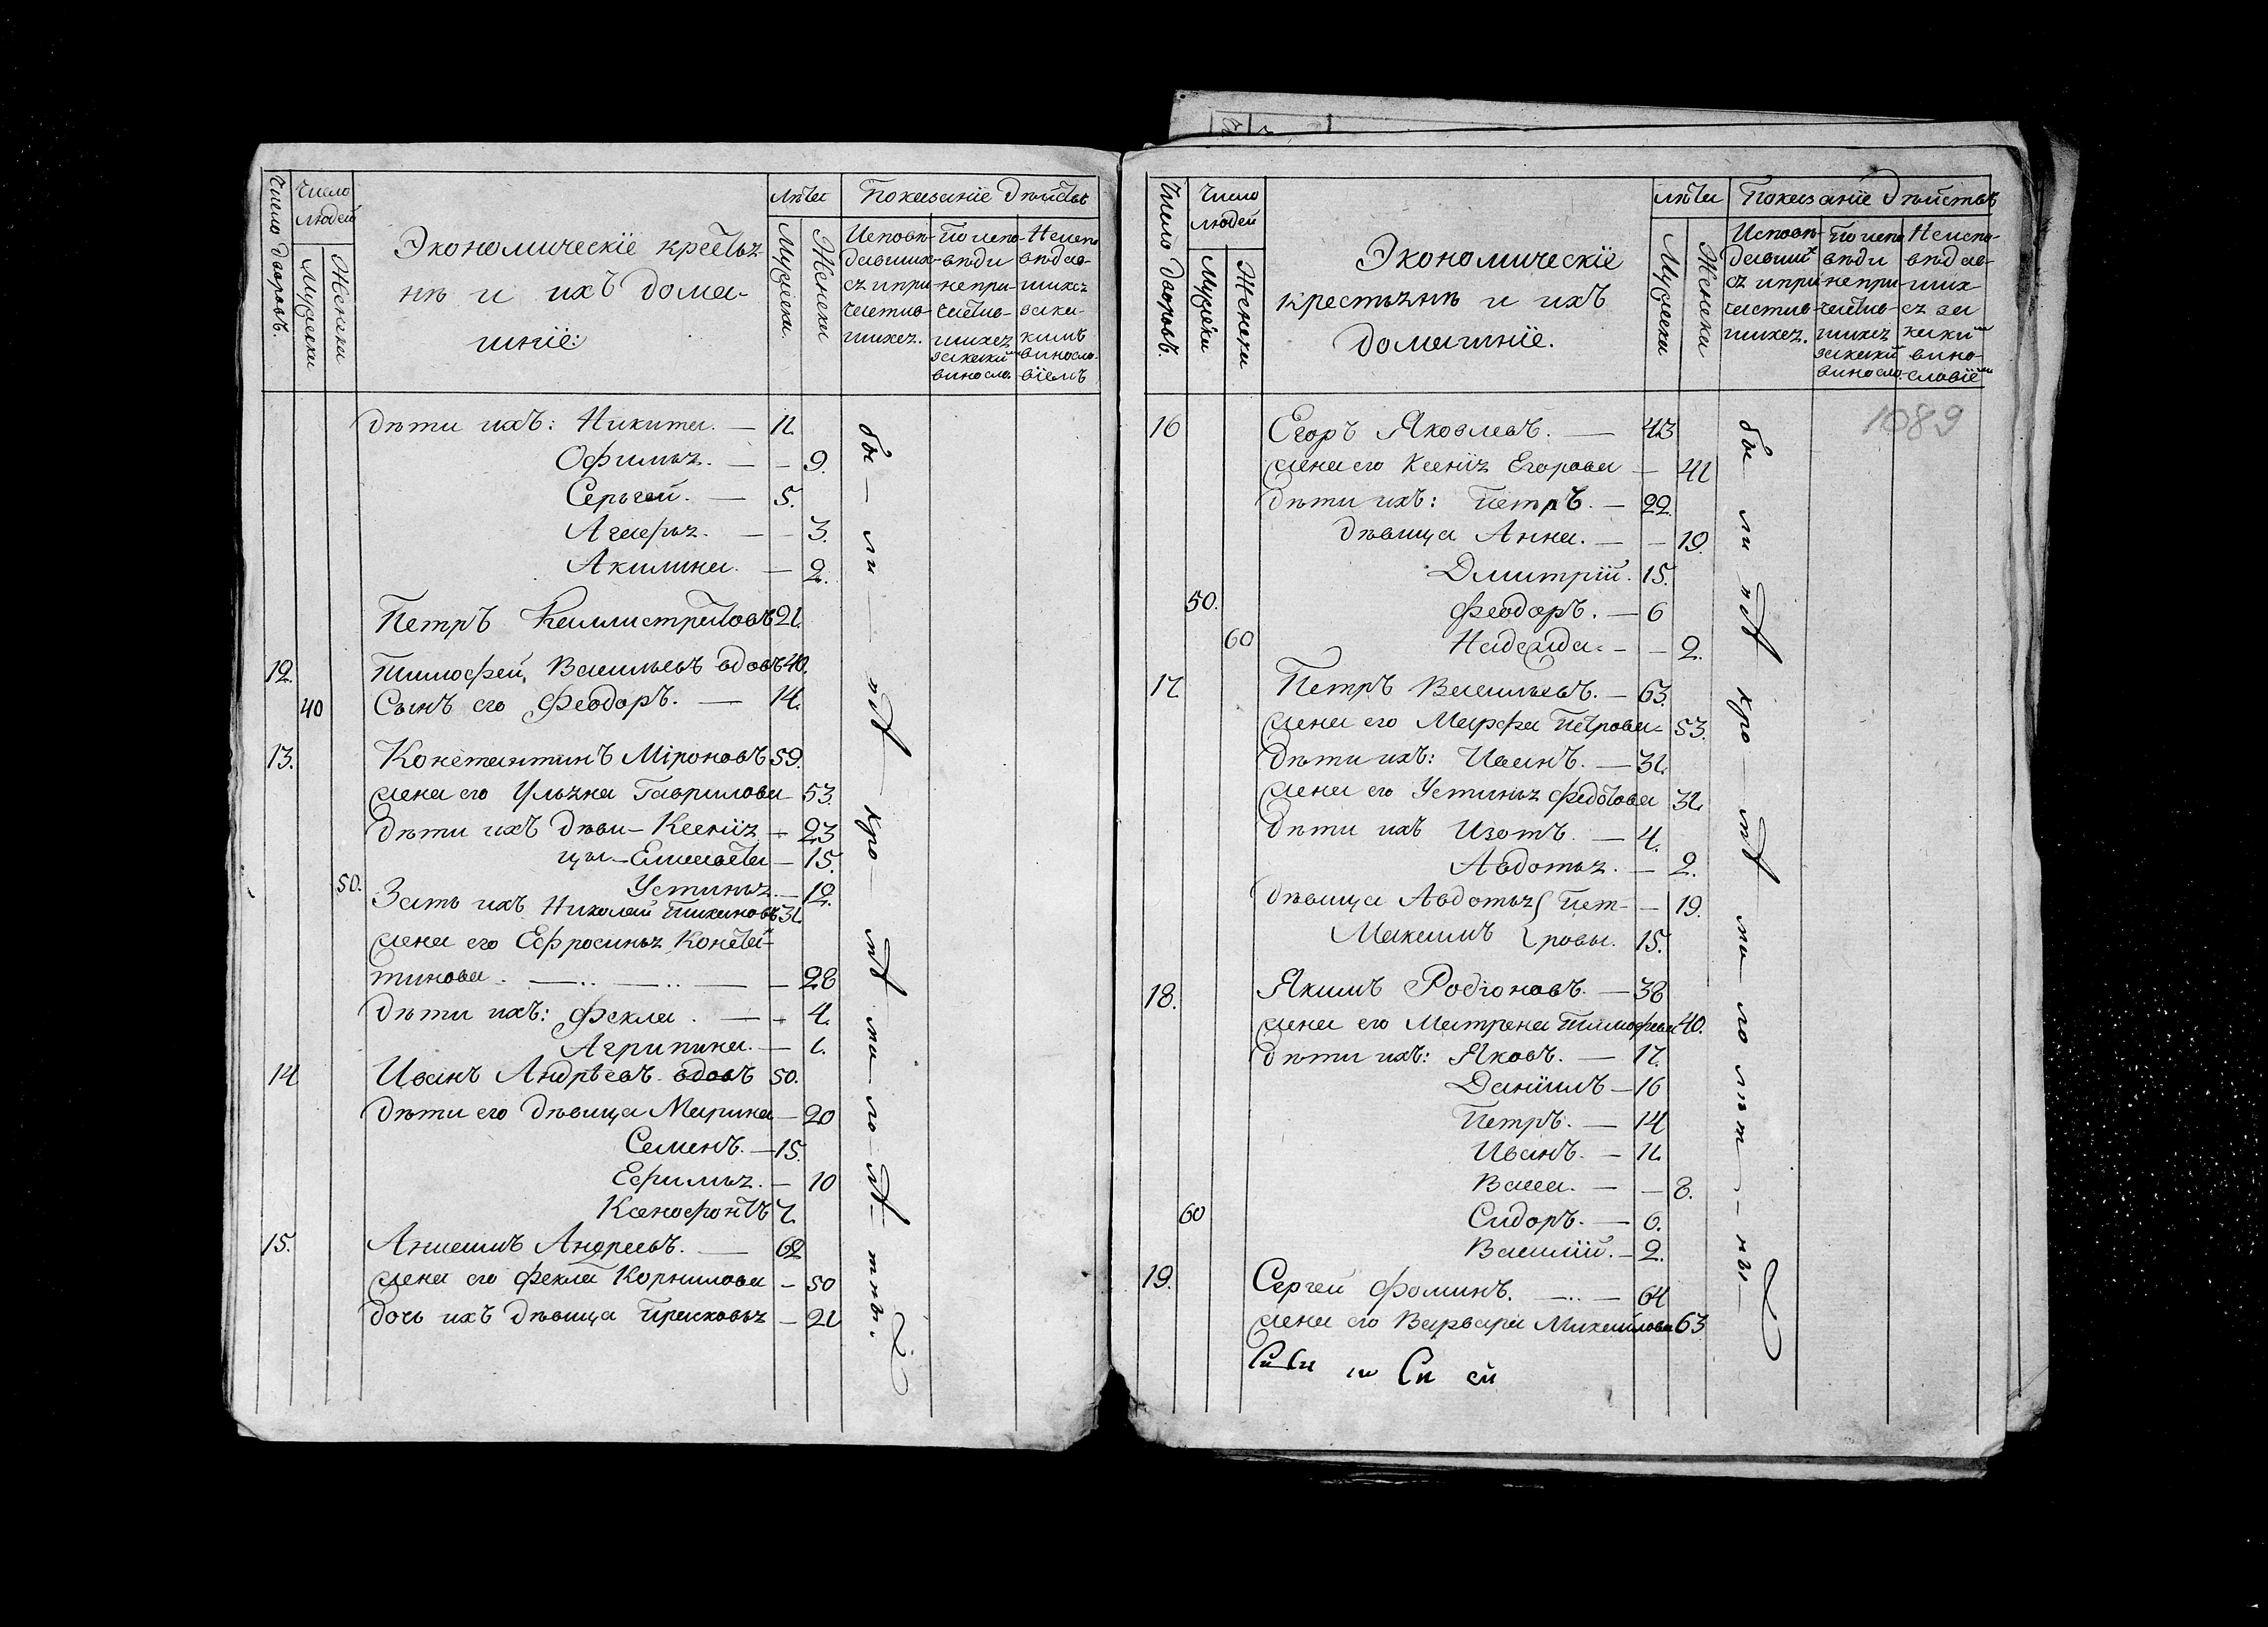 Число дворовъ.
Число людей
Мужеска
Женска
Экономическіе крестья-
нѣ и ихъ дома-
шніе:
лѣта
Мужеска.
Женска
Показаніе дѣйства
Исповѣ-
давших-
ся и при-
частив-
шихся.
По испо-
вѣди
не при-
частив-
шихся
за какимъ
виносло.
Неиспо
вѣдав-
шихся
за ка-
кимъ
виносло-
віемъ
дѣти ихъ: Никита. — 11.
Офимья. — — 9.
Серьгей. — 5.
Агафья. — — 3.
Акилина. — 2.
Петръ Каллистратовъ 21.
12. Тимофей Васильевъ вдовъ 40.
40 Сынъ его Феодоръ. — 14.
13. Константинъ Міроновъ 59.
жена его Ульяна Гаврилова — 53.
дѣти ихъ дѣви — Ксенія — 23
цы — Елисавета — 15.
50. Устинья. — 12.
Зять ихъ Николай Тихановъ 31.
жена его Ефросинья Констан-
тинова. — .. — .. — — 28
дѣти ихъ: Фекла. — — 4.
Агрипина. — 1.
14 Иванъ Андрѣевъ вдовъ 50.
дѣти его дѣвица Марина — 20
Семенъ. — 15.
Ефимья. — 10
Ксенофонтъ 7.
15. Анисимъ Андреевъ. — 62
жена его Фекла Корнилова — 50
дочь ихъ дѣвица Прасковья — 21
бы — ли — у — кро — ми — ло — тны.
Число дворовъ.
Число людей
Мужска
Женска
Экономическіе
крестьянѣ и ихъ
домашніе.
лѣта
Мужеска
Женска
Показаніе дѣйства
Исповѣ-
давших
ся и при
частив-
шихся.
По испо
вѣди
не при-
частив-
шихся
за какий
винсло.
Неиспо-
вѣдав-
ших-
ся за
каким
вино-
словіем
1089
16 Егоръ Яковлевъ. — 43
жена его Ксенія Егорова — 41
дѣти ихъ: Петръ. — 22.
дѣвица Анна. — — 19.
Дмитрій. 15.
50. Феодоръ. — 6
60 Надежда. — — 2.
17. Петръ Васильевъ. — 63.
жена его Марфа Петрова — 53.
дѣти ихъ: Иванъ. — 31.
жена его Устинья Федотова 31.
дѣти ихъ Изотъ. — 4.
Авдотья. — 2.
дѣвица Авдотья } Пет- — 19.
Максимъ } ровы. 15.
18. Якимъ Родіоновъ. — 38
жена его Матрена Тимофева 40.
дѣти ихъ: Яковъ. — 17.
Даніилъ — 16
Петръ. — 14
Иванъ. — 11.
Васса. — — 8.
60 Сидоръ. — 6.
Василій. — 2.
19. Сергей Фоминъ. — .. — 64
жена его Варвара Михайлова 63